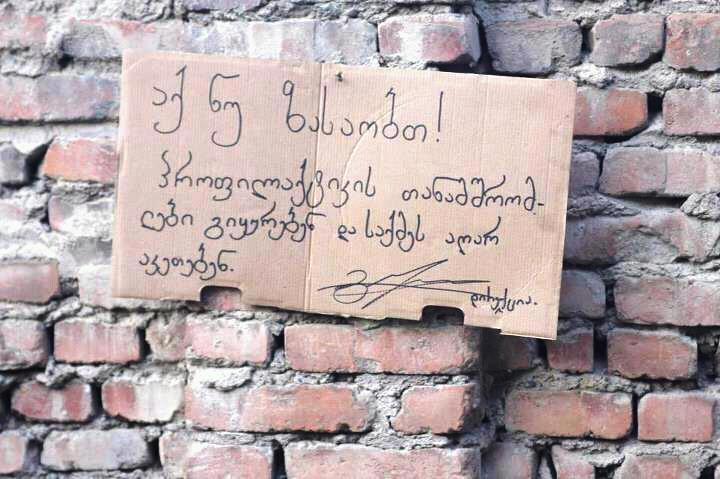 აქ ნუ ზასაობთ!
პროფილაქტიკის თანამშრომ-
ლები გიყურებენ და საქმეს აღარ
აკეთებენ.
დირექცია.